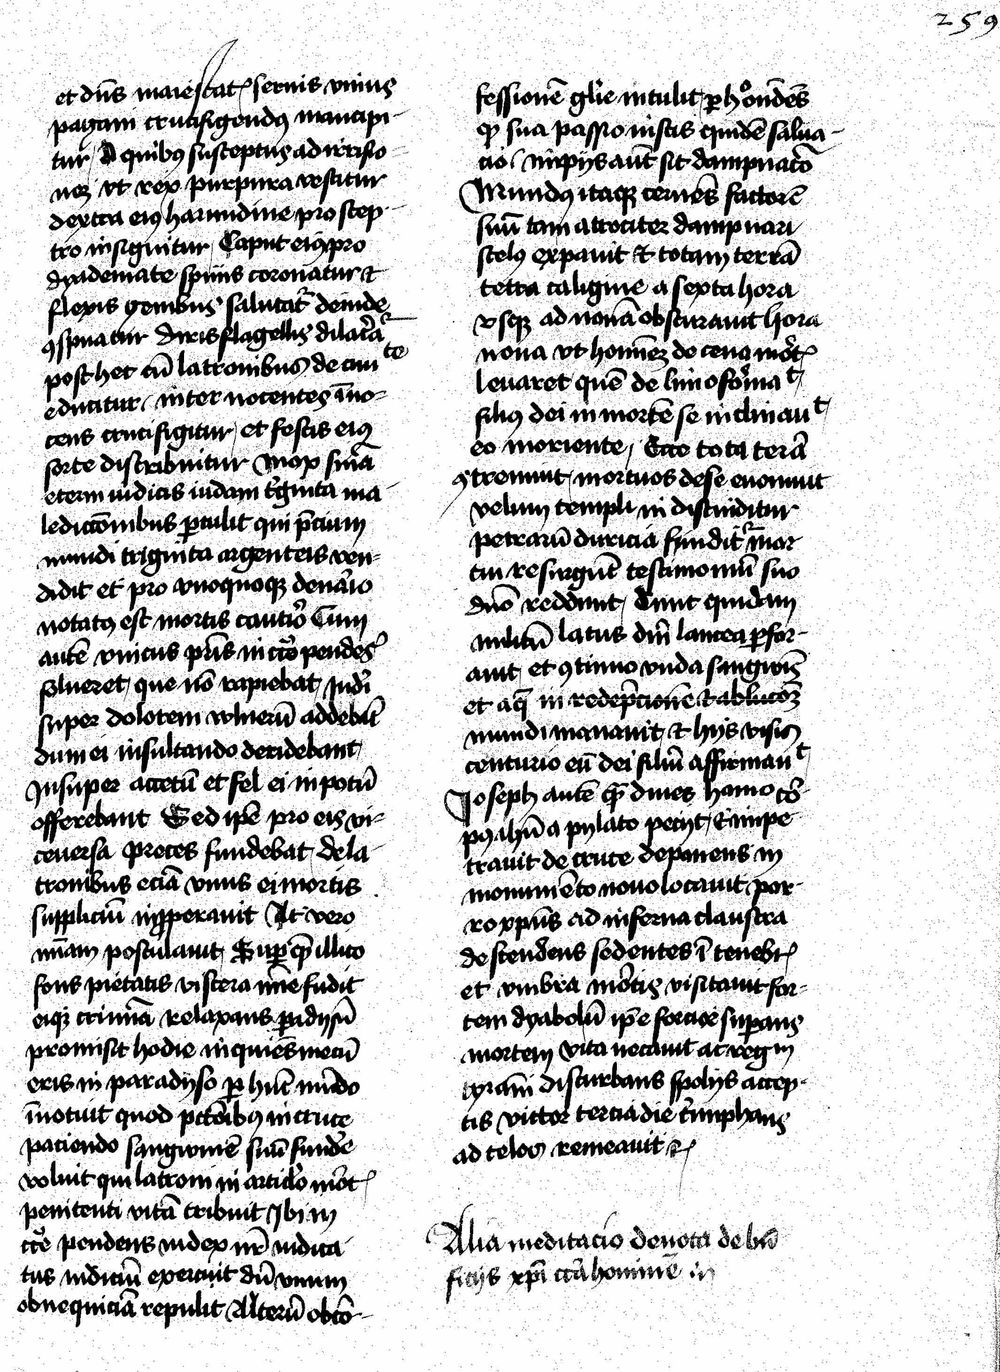 259
et dūs maiestat seruis vnius
pagani crucifigendus mancipi-
tur A quibus susceptus ad irrisio-
nez vt rex purpura vestitur
dextra eius harundine pro scep-
tro insignitur Caput eius pro
dyademate spinis coronatur et
flexis genibus salutatr deinde
9spuatur Diris flagellis dilata
post hec cū latronibus de ciuite
educitur inter nocentes īno-
cens crucifigitur et sortis eius
sorte distribuitur Mox
eterni iudicis iudam ma-
ledictōnibus ptulit qui pcium
mundi triginta argenteis ven-
didit et pro vnoquoque denario
notatus est mortis Cum
autē vnicus pris in pendes
solueret que nō rapiebat Iudei
super dolorem wlnerū addebāt
dum ei insultando deridebant
Insuper accetū et fel ei in potū
offerebant Sed ipē pro eis vi-
ceuersa preces fundebat de la-
tronibus eciā vnus ei mortis
suppliciū At vero
postulauit Super illico
fons pietatis viscera fudit
eique relaxans
promisit hodie inquiēs mecū
eris in paradyso p hūc mūdo
īnotuit quod pctōribus in cruce
paciendo sangwinē suū fundere
voluit qui latroni in articlo mort
penitenti vitā tribuit Ibi in
pendens iudex nr iudica
tus iudiciū exercuit dū vnum
ob nequiciā repulit Alterū ob cō-
fessionē glie intulit p hoc ondēs
q sua passio iustis quidē salua-
cio impijs aut sit dampnacō
Mundus itaque cernēs factorē
suū tam atrociter dampnari
scelus expauit et totam terrā
tetra caligine a sexta hora
vsque ad nonā obscurauit hora
nona vt hominez de ceno mort
leuaret quē de limo format
filius dei in mortē se inclinauit
eo moriente Ecce tota terā
9tremuit mortuos de se euomuit
velum templi in discinditur
petrarū duricia findit mor
tui resurgūt testimoniū suo
dno reddūt Tunc quidam
militū latus dni lancea pfor-
auit et 9tinuo vnda sangwinis
et aq in redepcionē et ablucōez
mundi manauit et hijs visis
centurio eū dei filiū affirmauit
Ioseph autē q diues homo cor-
pus ihū a pylato pecijt et impe-
trauit de cruce deponens in
monumēto nouo locauit por-
ro xpūs ad inferna claustra
descendens sedentes ī tenebr
et vmbra mortis visitauit for-
tem dyabolū ipe forcior supans
mortem vita necauit ac regni
tyranī disturbans spolijs accep-
tis victor tercia die triūphans
ad celos remeauit
Alia meditacio deuota de bn
ficijs xpi hominē in